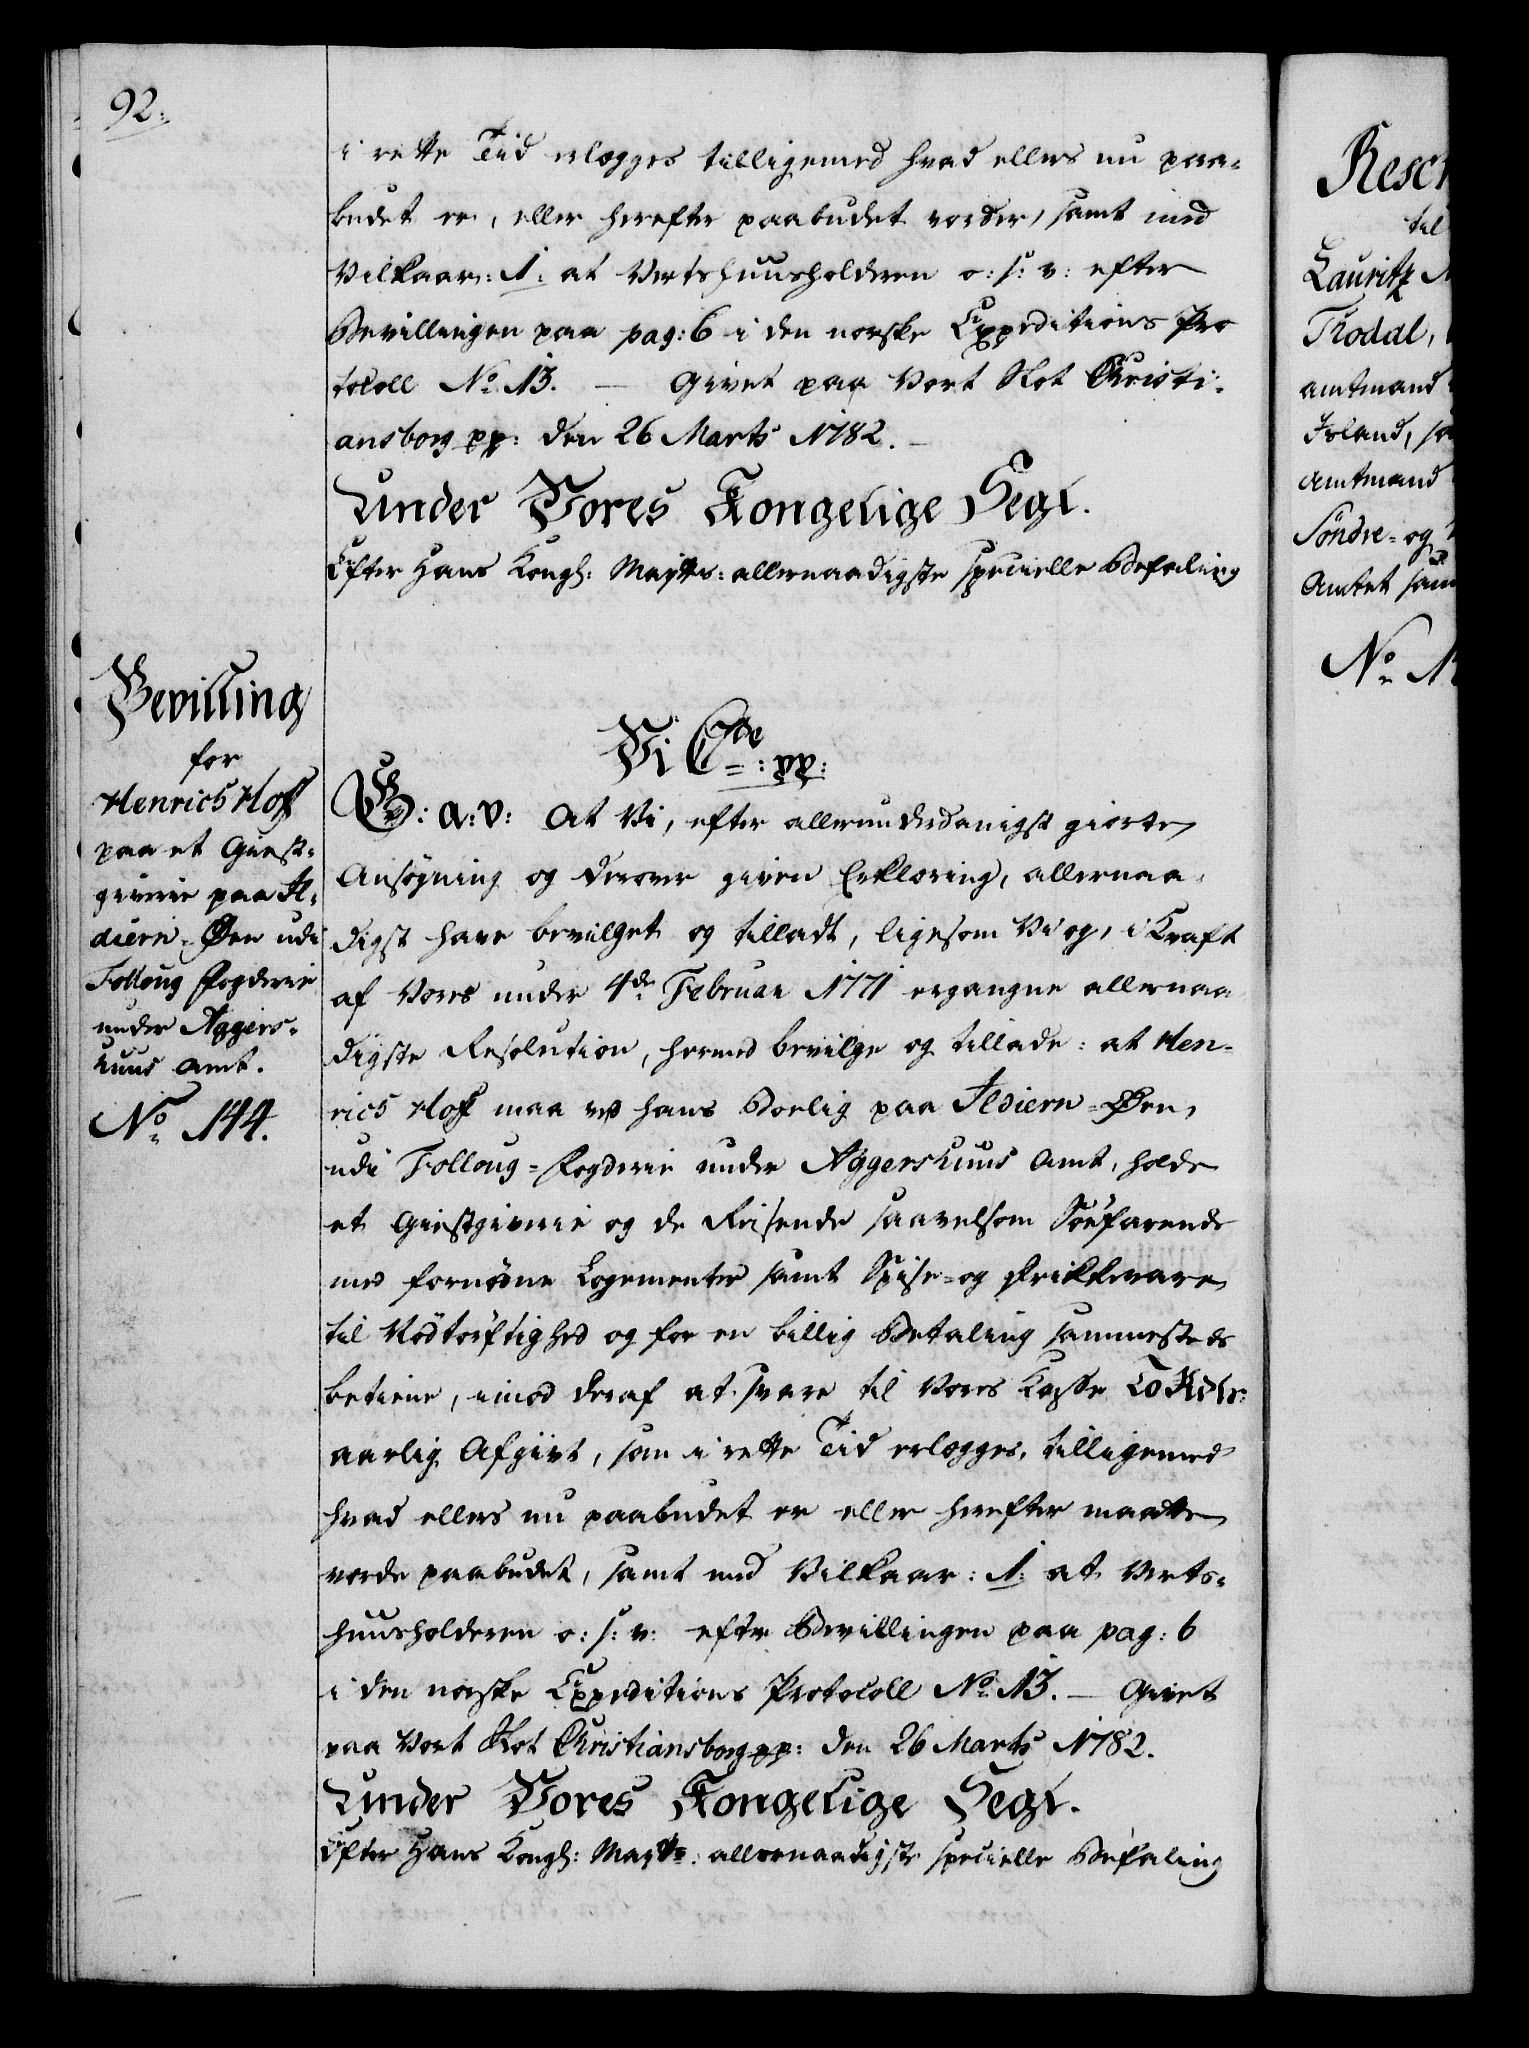 92.
i rette Tid erlægges tilligemed hvad ellers nu paa-
budet er, eller herefter paabudet vorder, samt med
Vilkaar: 1. at Vertshuusholderen o: s: v: efter
Bevillingen paa pag: 6 i den norske Expeditions Pro
tocoll No 13. — Givet paa Vort Slot Christi-
ansborg pp: den 26 Marts 1782. —
Under Vores Kongelige Segl.
Efter Hans Kongl: Maytts: allernaadigste specielle Befaling
Bevilling
for
Henrich Hoff
paa et Giest-
giverie paa Il-
diern-Øen udi
Folloug Fogderie
under Aggers-
huus Amt.
No 144.
Vi C7de: pp:
G: A: V: At Vi, efter allerunderdanigst giorte
Ansøgning og derover given Erklæring, allernaa-
digst have bevilget og tilladt, ligesom Vi og, i Kraft
af Vores under 4de Februar 1771 ergangne allernaa
digste Resolution, hermed bevilge og tillade: at Hen-
rich Hoff maa ved hans Bolig paa Ildiern-Øen,
udi Folloug-Fogderie under Aggershuus Amt, holde
et Giestgiverie og de Reisende saavelsom Söefarende
med fornödne Logementer samt Spise- og Drikkevare
til Nödtörftighed og for en billig Betaling sammesteds
betiene, imod deraf at svare til Vores Kasse To Rdlr:
aarlig Afgivt, som i rette Tid erlægges, tilligemed
hvad ellers nu paabudet er eller herefter maatte
vorde paabudet, samt med Vilkaar: 1. at Verts-
huusholderen o: s: v: efter Bevillingen paa pag: 6
i den norske Expeditions Protocoll No 13. — Givet
paa Vort Slot Christiansborg pp: den 26 Marts 1782.
Under Vores Kongelige Segl.
Efter Hans Kongl: Maytts: allernaadigste specielle Befaling
Rescr
til
Lauritz
Thodal,
amtmand
Island, sa
Amtmand
Söndre- og
Amtet sam
No 1